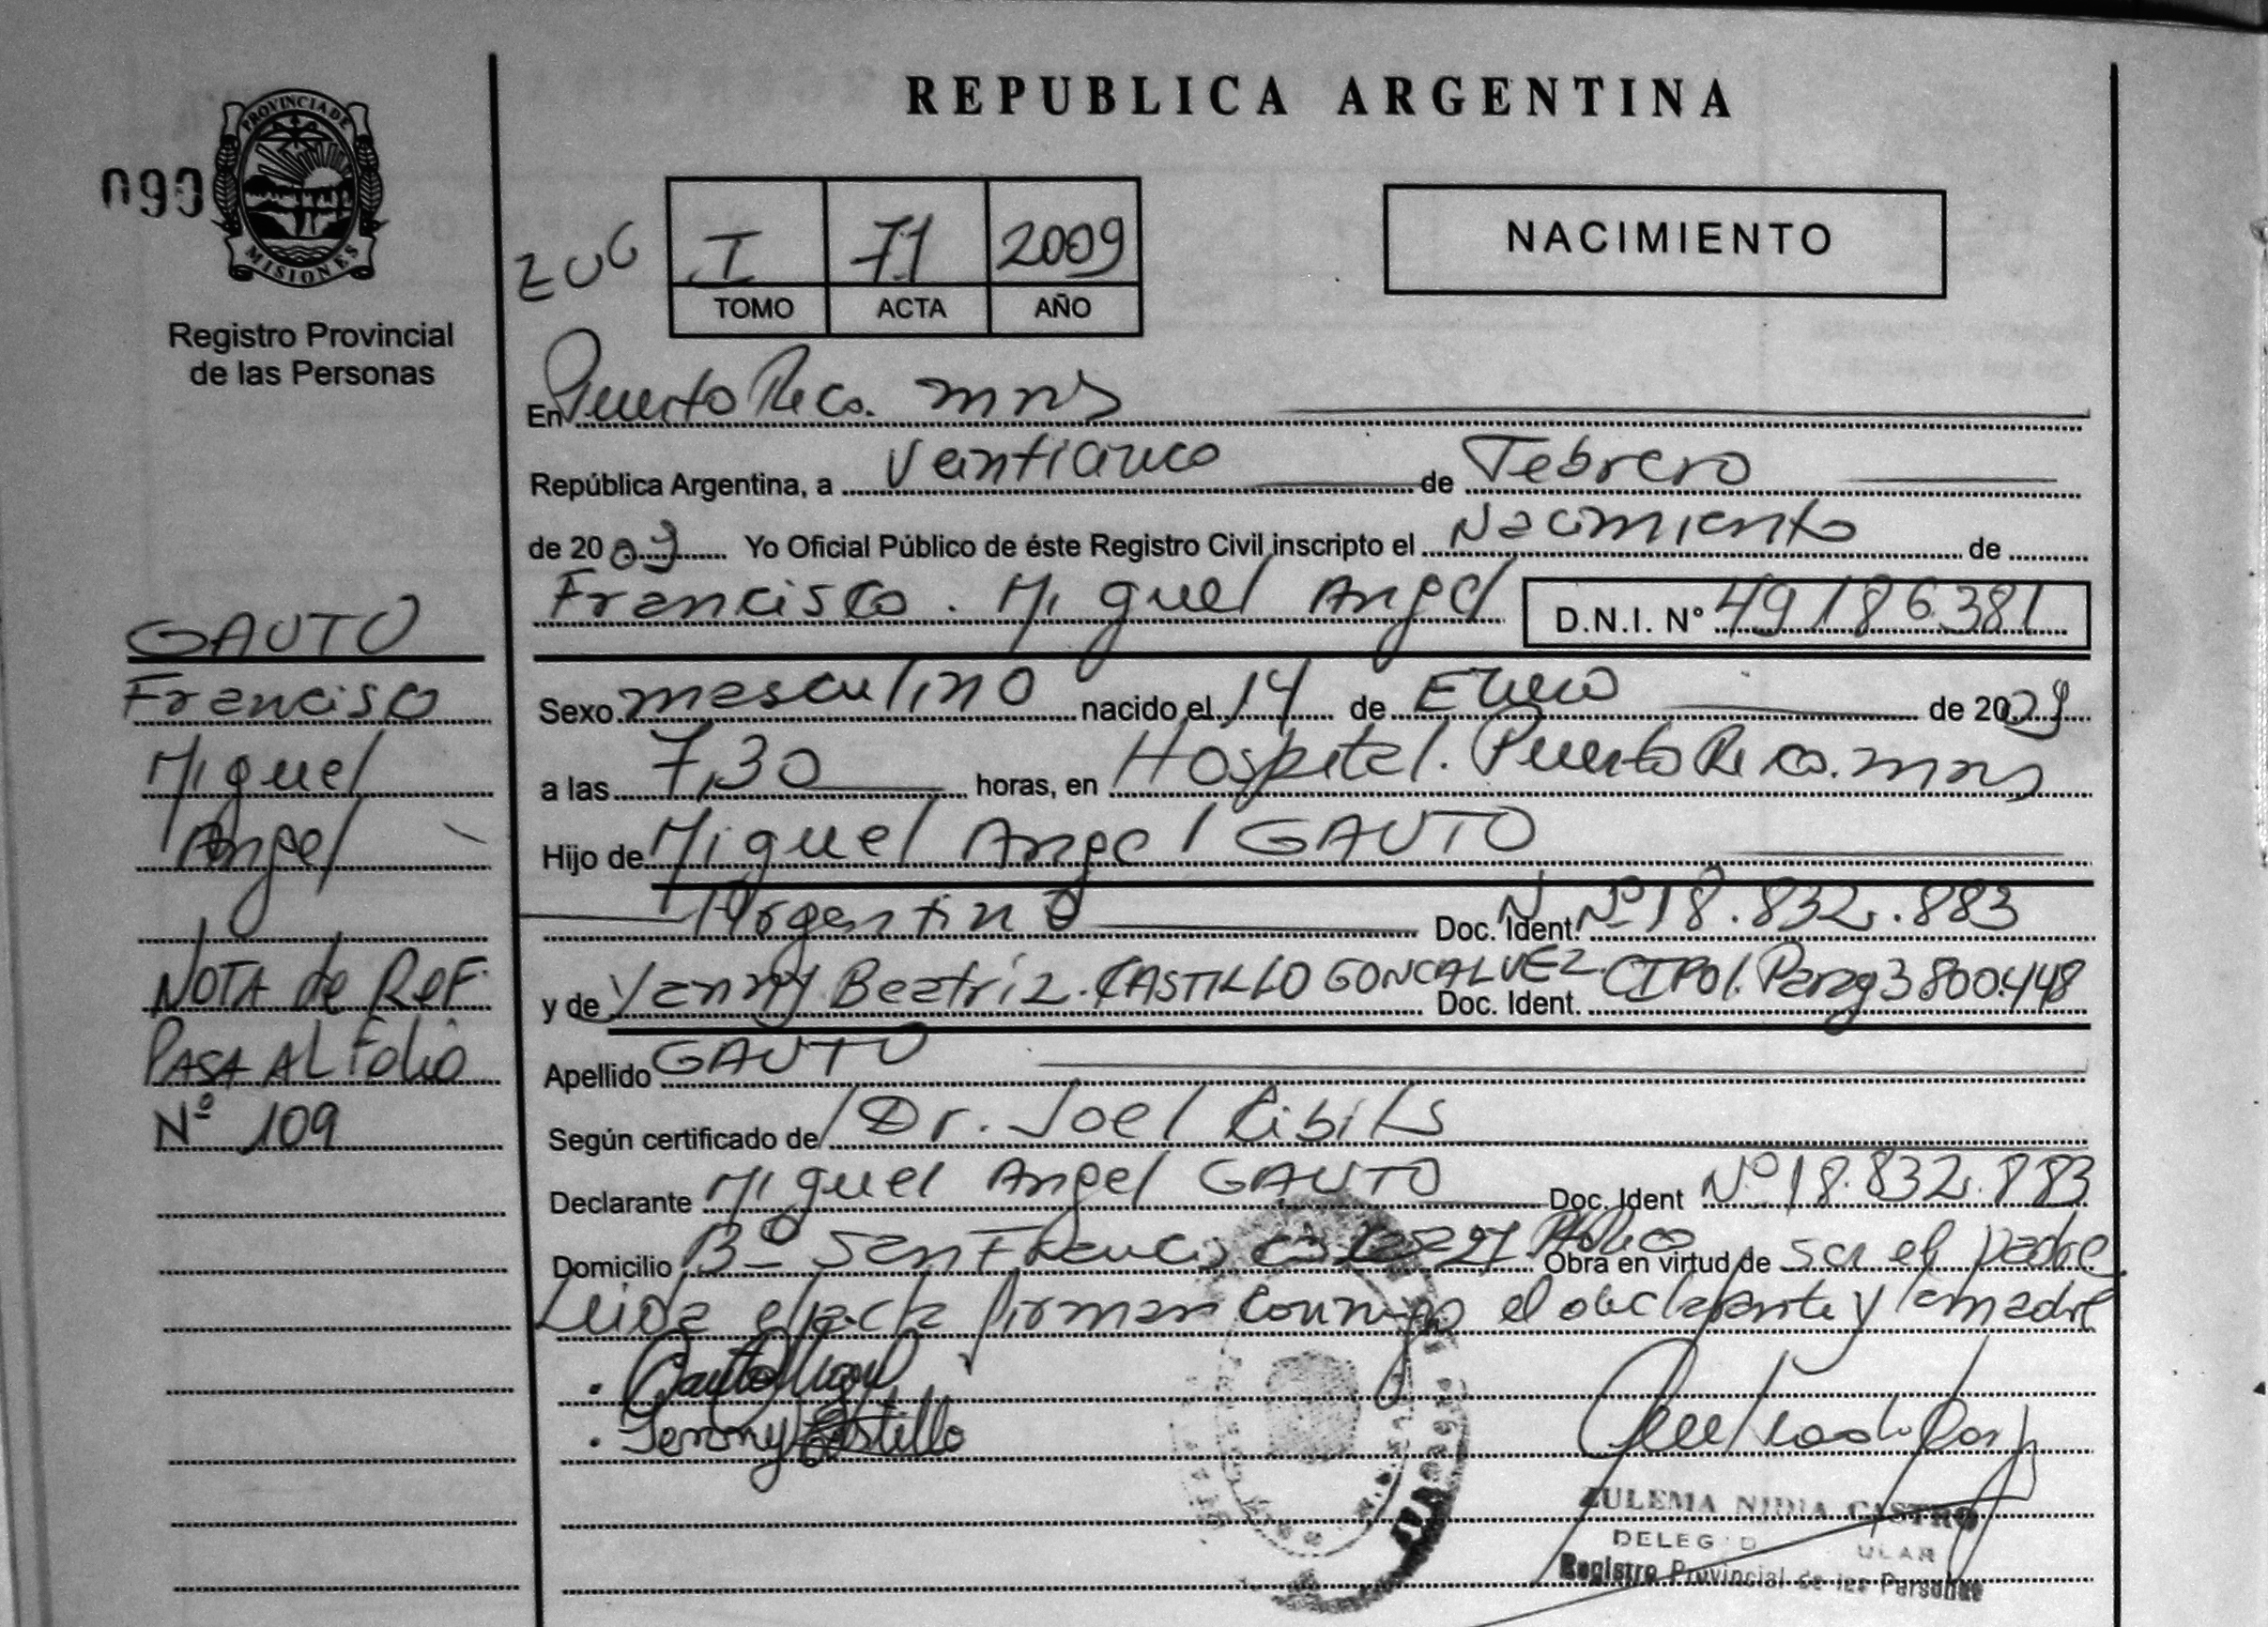 REPUBLICA ARGENTINA
090
PROVINCIA DE
MISIONES
Registro Provincial
de las Personas
I 71 2009
TOMO ACTA AÑO
NACIMIENTO
En Puerto Rico. mns
República Argentina, a Veinticinco de Febrero
de 2009 Yo Oficial Público de éste Registro Civil inscripto el Nacimiento de
Francisco. Miguel Angel D.N.I. Nº 49186381
Sexo masculino nacido el 14 de Enero de 2009
a las 7,30 horas, en Hospital. Puerto Rico. mns
Hijo de Miguel Angel GAUTO
Argentino Doc. Ident. Nº 18.832.883
y de Yenny Beatriz. CASTILLO GONCALVEZ Doc. Ident. CIPol. Parag 3800.448
Apellido GAUTO
Según certificado de Dr. Joel
Declarante Miguel Angel GAUTO Doc. Ident Nº 18.832.883
Domicilio Bº San Francisco Obra en virtud de ser el padre
Leida el acta firman conmigo el declarante y la madre
Gauto Miguel
Yenny Castillo
ZULEMA NIDIA CASTRO
Registro Provincial de las Personas
GAUTO
Francisco
Miguel
Angel
NOTA de REF.
PASA AL Folio
Nº 109